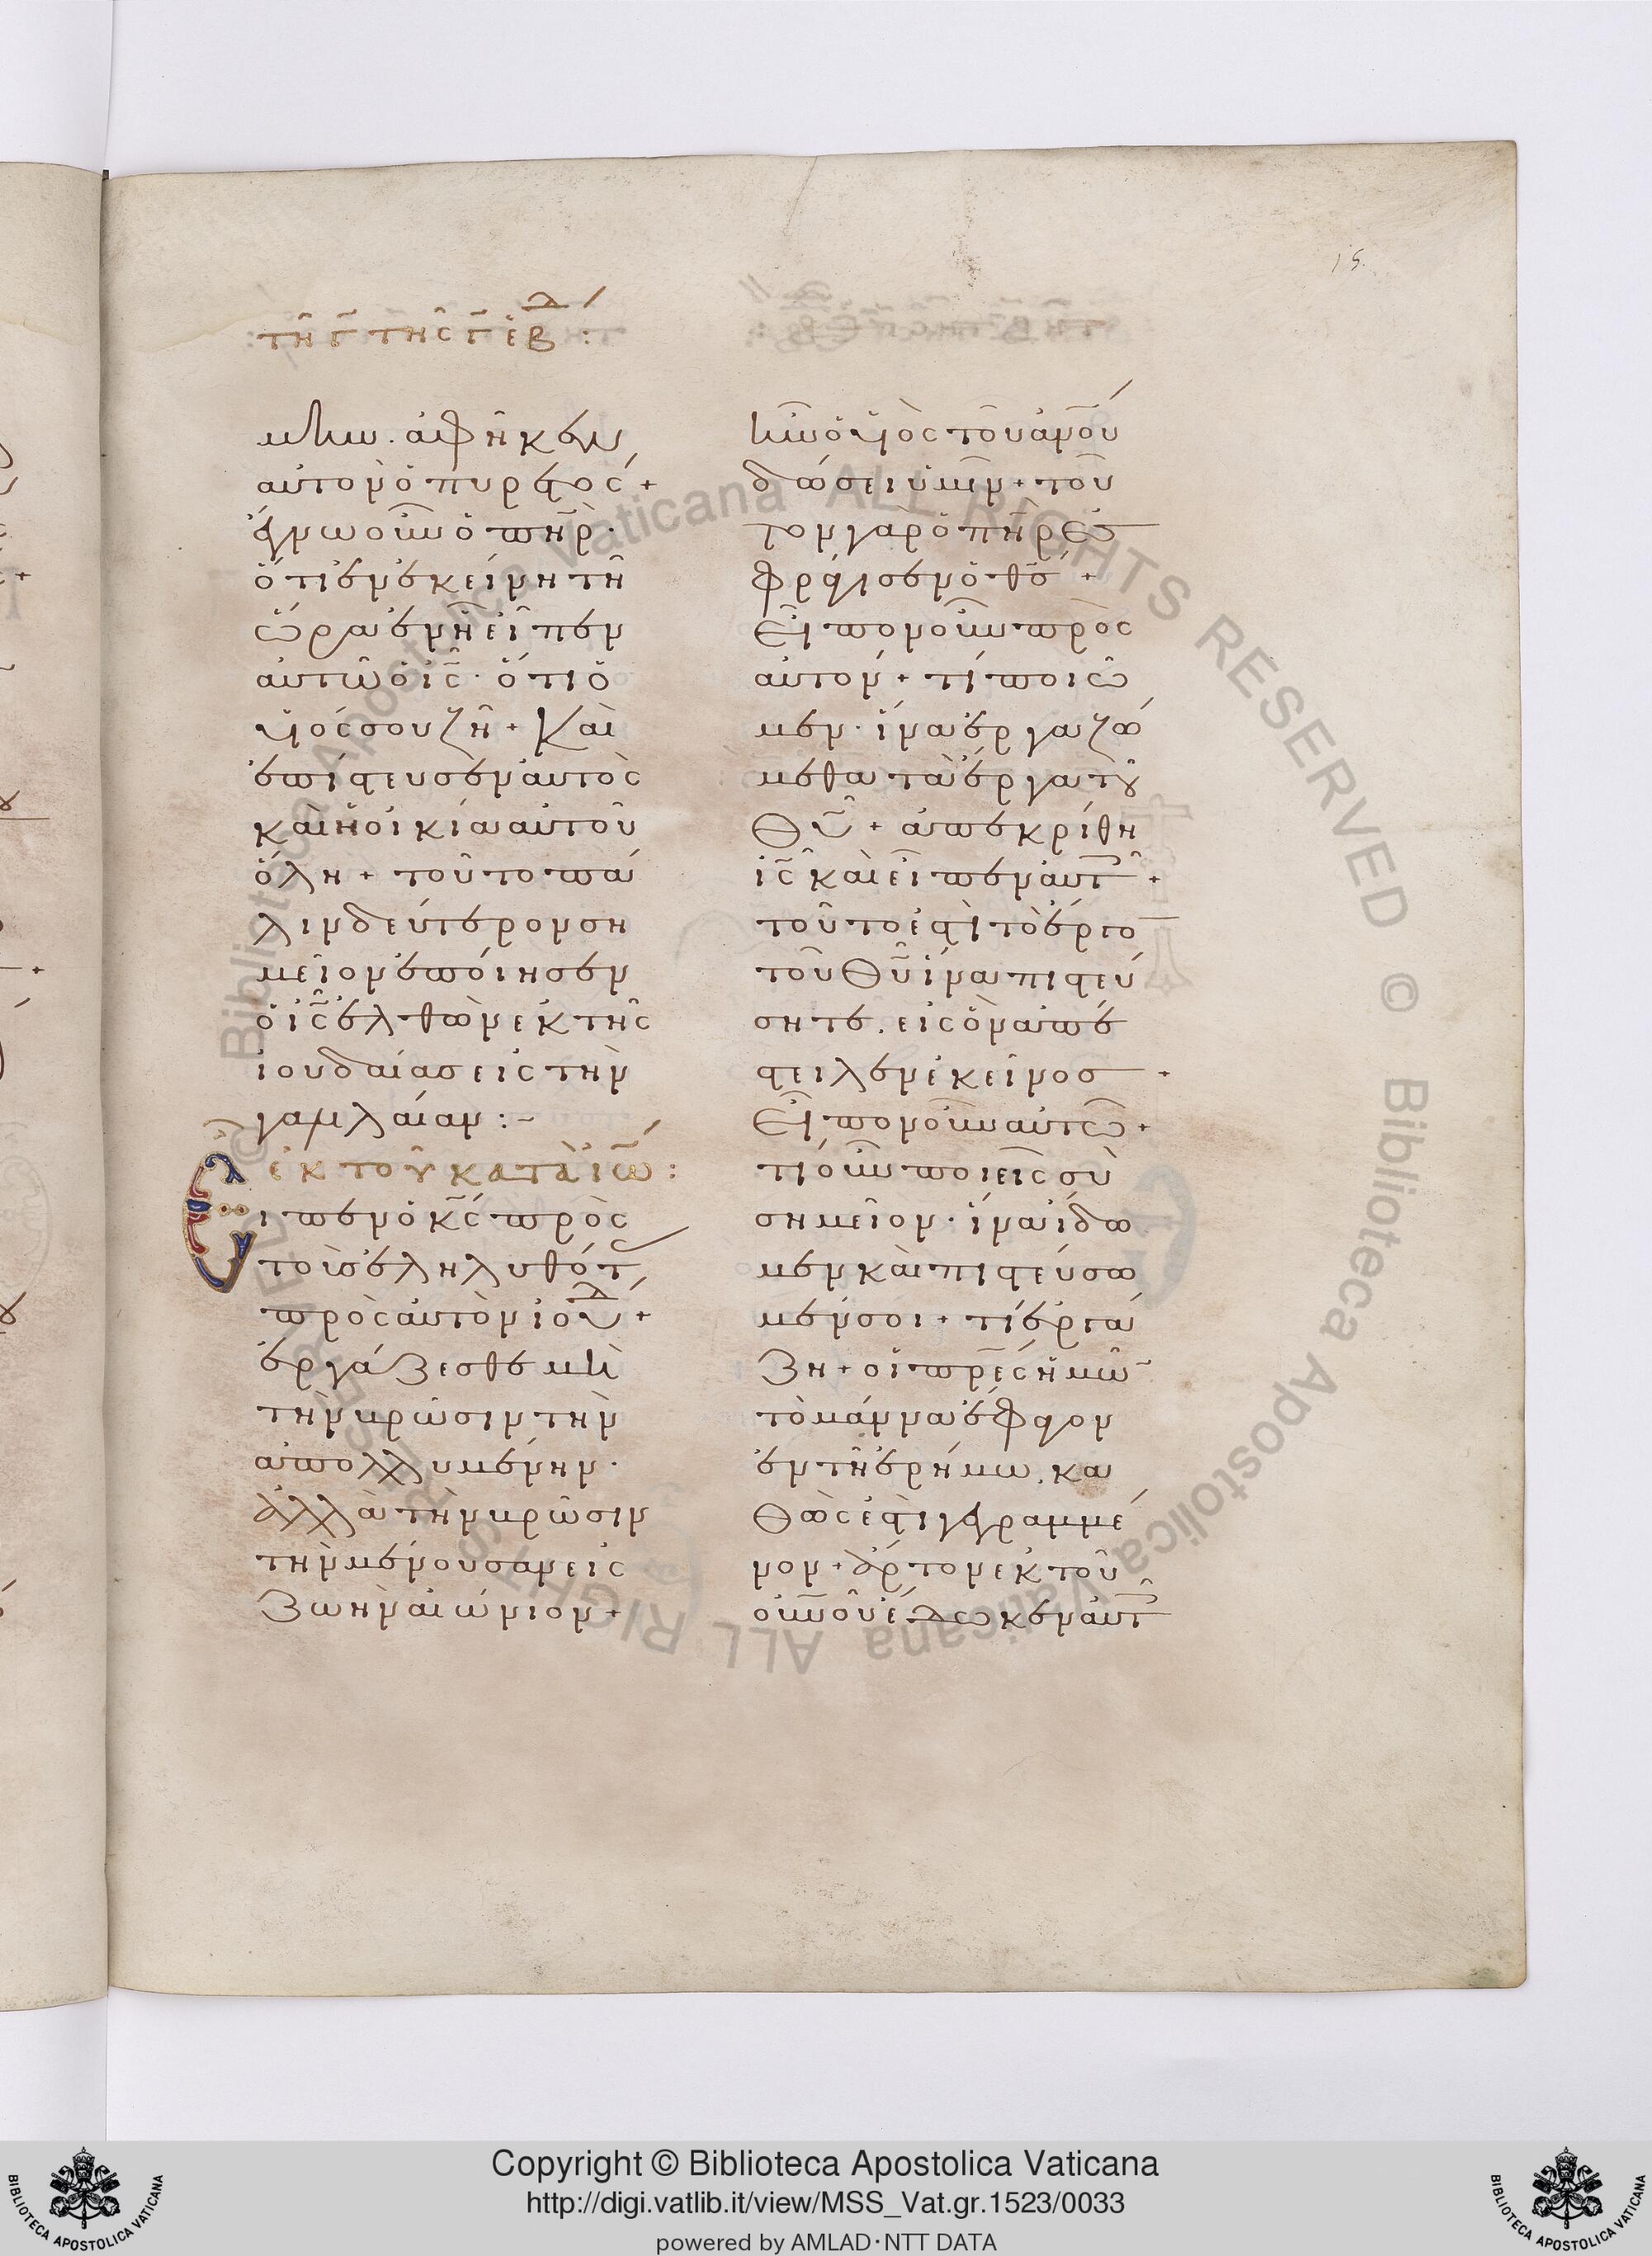 15
τῆ γ̄ τῆς γ̄ ἑβδ :
μην. ἀφῆκεν
αὐτὸν ὁ πυρετός +
ἔγνω οὖν ὁ πη̄ρ·
ὅτι ἐν ἐκείνη τῆ
ὥρα ἐν ἧ εἶπεν
αὐτῶ ὁ ις̄· ὅτι ὁ
υἱός σου ζῆ + Καὶ
ἐπίστευσεν αὐτὸς
καὶ ἡ οἰκία αὐτοῦ
ὅλη + τοῦτο πά
λιν δεύτερον ση
μεῖον ἐποίησεν
ὁ ις̄ ἐλθὼν ἐκ τῆς
ἰουδαίας εἰς τὴν
γαλιλαίαν :-
ἐκ τοῦ κατὰ ἰω̄ :
Εἶπεν ὁ κς̄ πρὸς
τοὺς ἐληλυθότ
πρὸς αὐτὸν ἰουδ +
ἐργάζεσθε μὴ
τὴν βρῶσιν τὴν
ἀπολλυμένην·
ἀλλὰ τὴν βρῶσιν
τὴν μένουσαν εἰς
ζωὴν αἰώνιον +
ἣν ὁ υἱὸς τοῦ ἀνο̄υ
δώσει ὑμῖν + τοῦ
τον γὰρ ὁ πη̄ρ ἐσ
φράγισεν ὁ θς̄ +
Εἶπον οὖν πρὸς
αὐτόν + τί ποιῶ
μεν· ἵνα ἐργαζώ
μεθα τὰ ἔργα τοῦ
Θῡ + ἀπεκρίθη
ις̄ καὶ εἶπεν αὐτ +
τοῦτο ἐστὶ τὸ ἔργο
τοῦ Θῡ ἵνα πιστεύ
σητε. εἰς ὃν ἀπέ
στειλεν ἐκεῖνος +
Εἶπον οὖν αὐτῶ +
τί οὖν ποιεῖς σὺ
σημεῖον· ἵνα ἴδω
μεν καὶ πιστεύσω
μέν σοι + τί ἐργά
ζη + οἱ πρ̄ες ἡμῶ
τὸ μάννα ἔφαγον
ἐν τῆ ἐρήμω. κα
Θώς ἐστι γεγραμμέ
νον + ἄρτον ἐκ τοῦ
οὐνο̄υ ἔδωκεν αὐτ
Copyright © Biblioteca Apostolica Vaticana
http://digi.vatlib.it/view/MSS_Vat.gr.1523/0033
powered by AMLAD·NTT DATA
BIBLIOTECA APOSTOLICA VATICANA
BIBLIOTECA APOSTOLICA VATICANA
© Biblioteca Apostolica Vaticana ALL RIGHTS RESERVED © Biblioteca Apostolica Vaticana ALL RIGHTS RESERVED